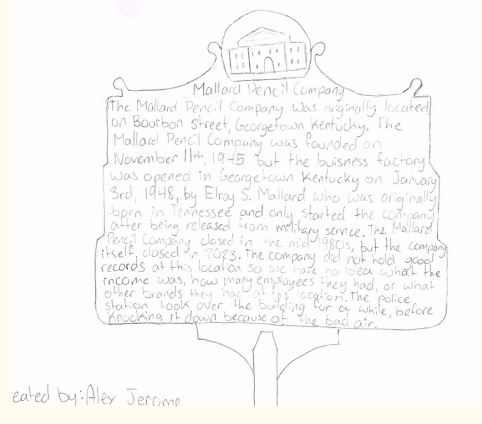 Mallard Pencil Company
The Mallard Pencil Company was originally located
on Bourbon Street, Georgetown Kentucky. The
Mallard Pencil Company was founded on
November 11th, 1945 but the buisness factory
was opened in Georgetown Kentucky on January
3rd, 1948, by Elroy S. Mallard who was originally
born in Tennessee and only started the company
after being released from military service. The Mallard
Pencil Company closed in the mid 1980s, but the company
itself closed in 2023. The company did not hold good
records at this location so we have no idea what the
income was, how many employees they had, or what
other brands they had at this location. The police
station took over the building for a while, before
knocking it down because of the bad air.
eated by: Alex Jerome